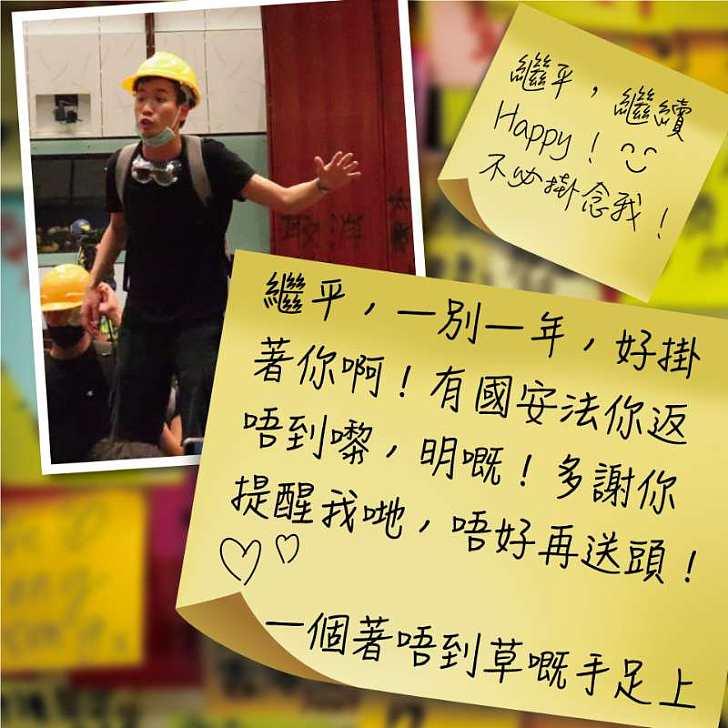 繼平，繼續
Happy！
不必掛念我！
取消
繼平，一別一年，好掛
著你啊！有國安法你返
唔到嚟，明嘅！多謝你
提醒我哋，唔好再送頭！
一個著唔到草嘅手足上